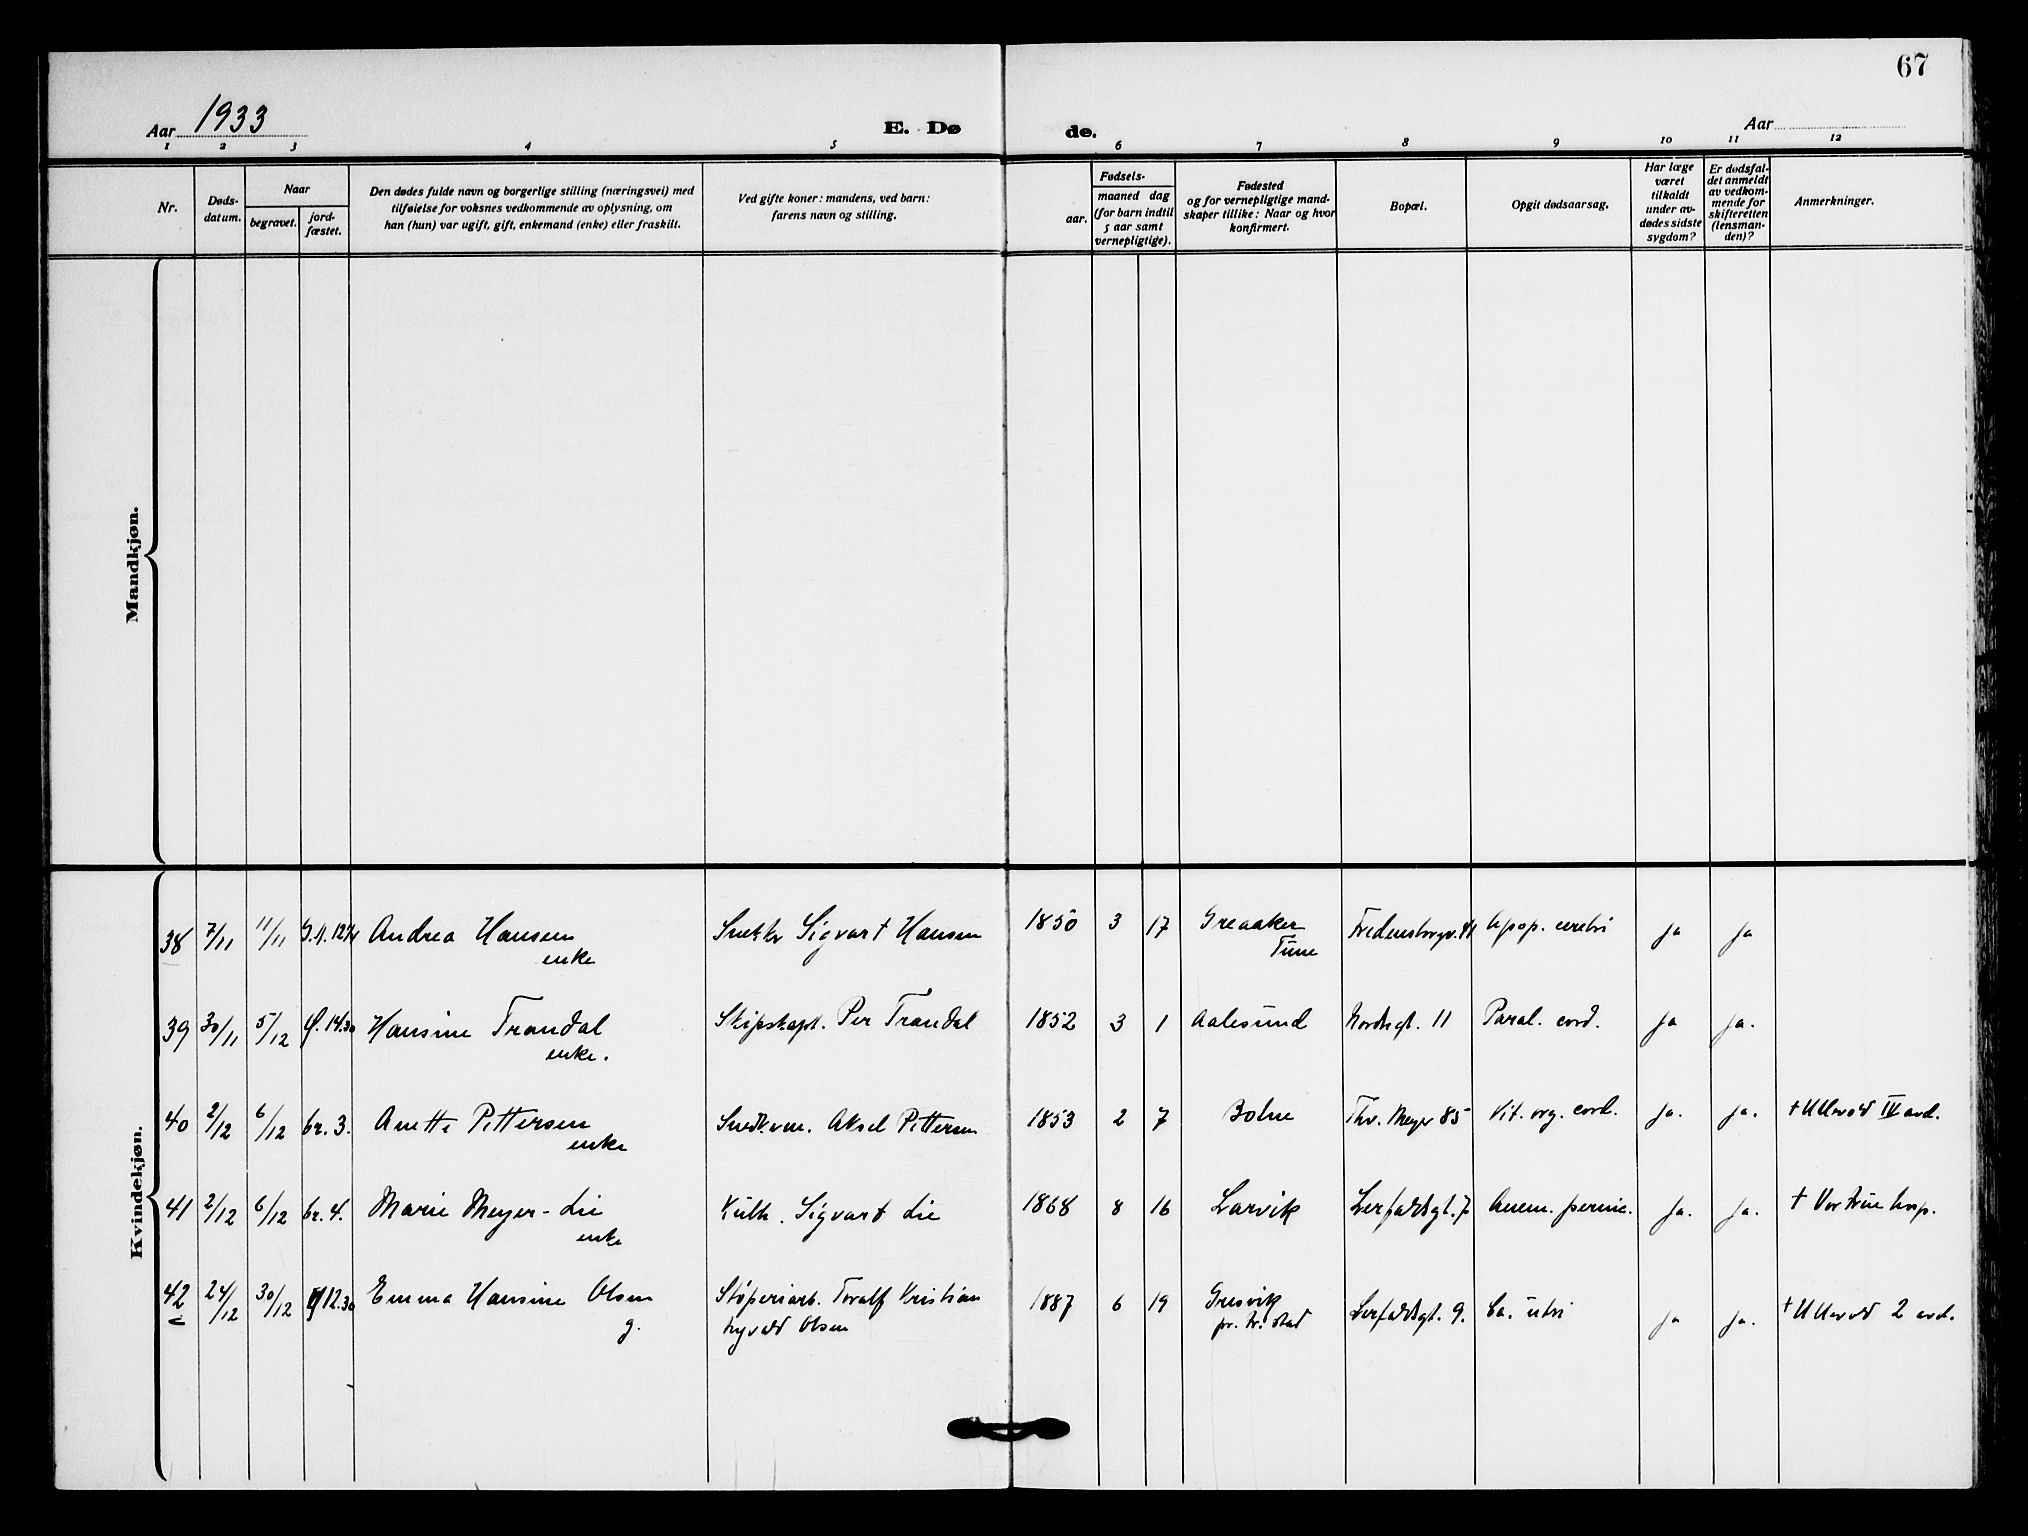 67
Aar 1933
E. Dø
de.
Aar
1 2 3 4 5 6 7 8 9 10 11 12
Nr.
Døds-
datum.
Naar
begravet.
jord-
fæstet.
Den dødes fulde navn og borgerlige stilling (næringsvei) med
tilføielse for voksnes vedkommende av oplysning, om
han (hun) var ugift, gift, enkemand (enke) eller fraskilt.
Ved gifte koner: mandens, ved barn:
farens navn og stilling.
Fødsels-
aar.
maaned dag
(for barn indtil
5 aar samt
vernepligtige).
Fødested
og for vernepligtige mand-
skaper tillike: Naar og hvor
konfirmert.
Bopæl.
Opgit dødsaarsag.
Har læge
været
tilkaldt
under av-
dødes sidste
sygdom?
Er dødsfal-
det anmeldt
av vedkom-
mende for
skifteretten
(lensman-
den)?
Anmerkninger.
Mandkjøn.
Kvindekjøn.
38 7/11 11/11 Andrea Hansen Sigvart Hansen 1850 3 17 Greaaker Apop. cerebri ja ja
enke Tune
39 30/11 5/12 14.30 Hansine Trandal Skipskapt. Per Trandal 1852 3 1 Aalesund Nordregt. 11 Paral. cord. ja ja.
enke.
40 2/12 6/12 br. 3. Anette Pettersen Aksel Pettersen 1853 2 7 Thv. Meyer 85 Vit. org. cord. ja. ja. + Ullevold IV avd.
enke
41 2/12 6/12 br. 4. Marie Meyer-Lie Sigvart Lie 1868 8 16 Larvik Lerfaldsgt. 7 Anem. pernic. ja. ja. + Vor Frue hosp.
enke
42 24/12 30/12 12.30 Emma Hansine Olsen Støperiarb. Toralf Kristian 1887 6 19 Gresvik Lerfaldsgt. 9. Ca. uteri ja ja. + Ullevold 2 avd.
g. Olsen pr. Fr.stad